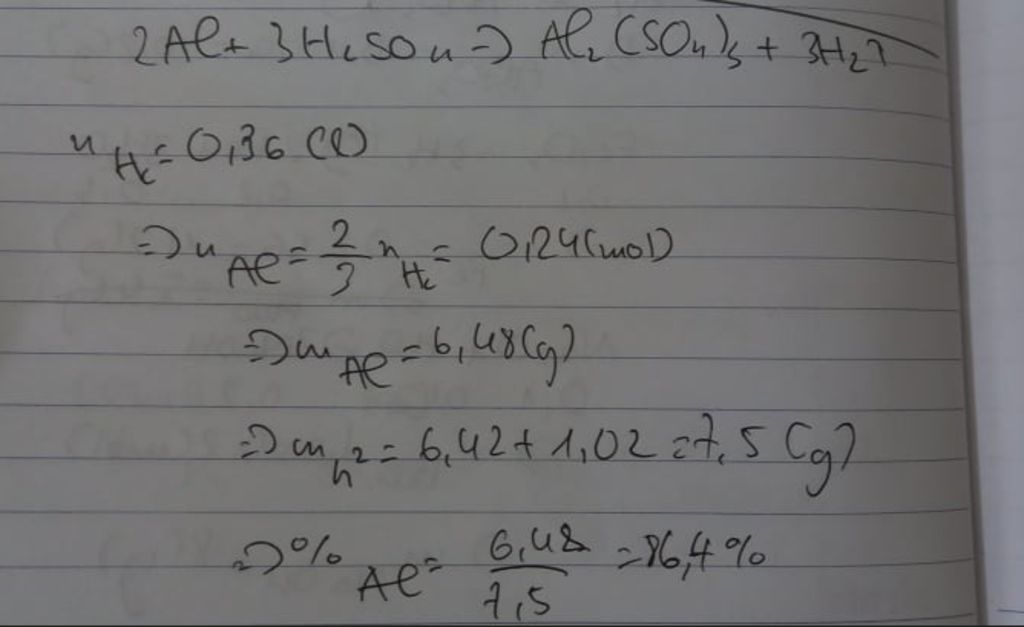 2Al + 3H₂SO₄ => Al₂(SO₄)₃ + 3H₂↑
n H₂ = 0,36 (l)
=> n Al = 2/3 n H₂ = 0,24 (mol)
=> m Al = 6,48 (g)
=> m h² = 6,42 + 1,02 = 7,5 (g)
=> % Al = 6,48/7,5 = 86,4%